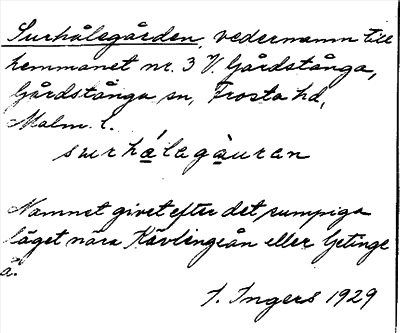 Surhålegården, vedernamn till
hemmanet nr. 3 V. Gårdstånga,
Gårdstånga sn, Frosta hd,
Malm. l.
surhålagauran
Namnet givet efter det sumpiga
läget nära Kävlingeån eller Getinge
å.
I. Ingers 1929